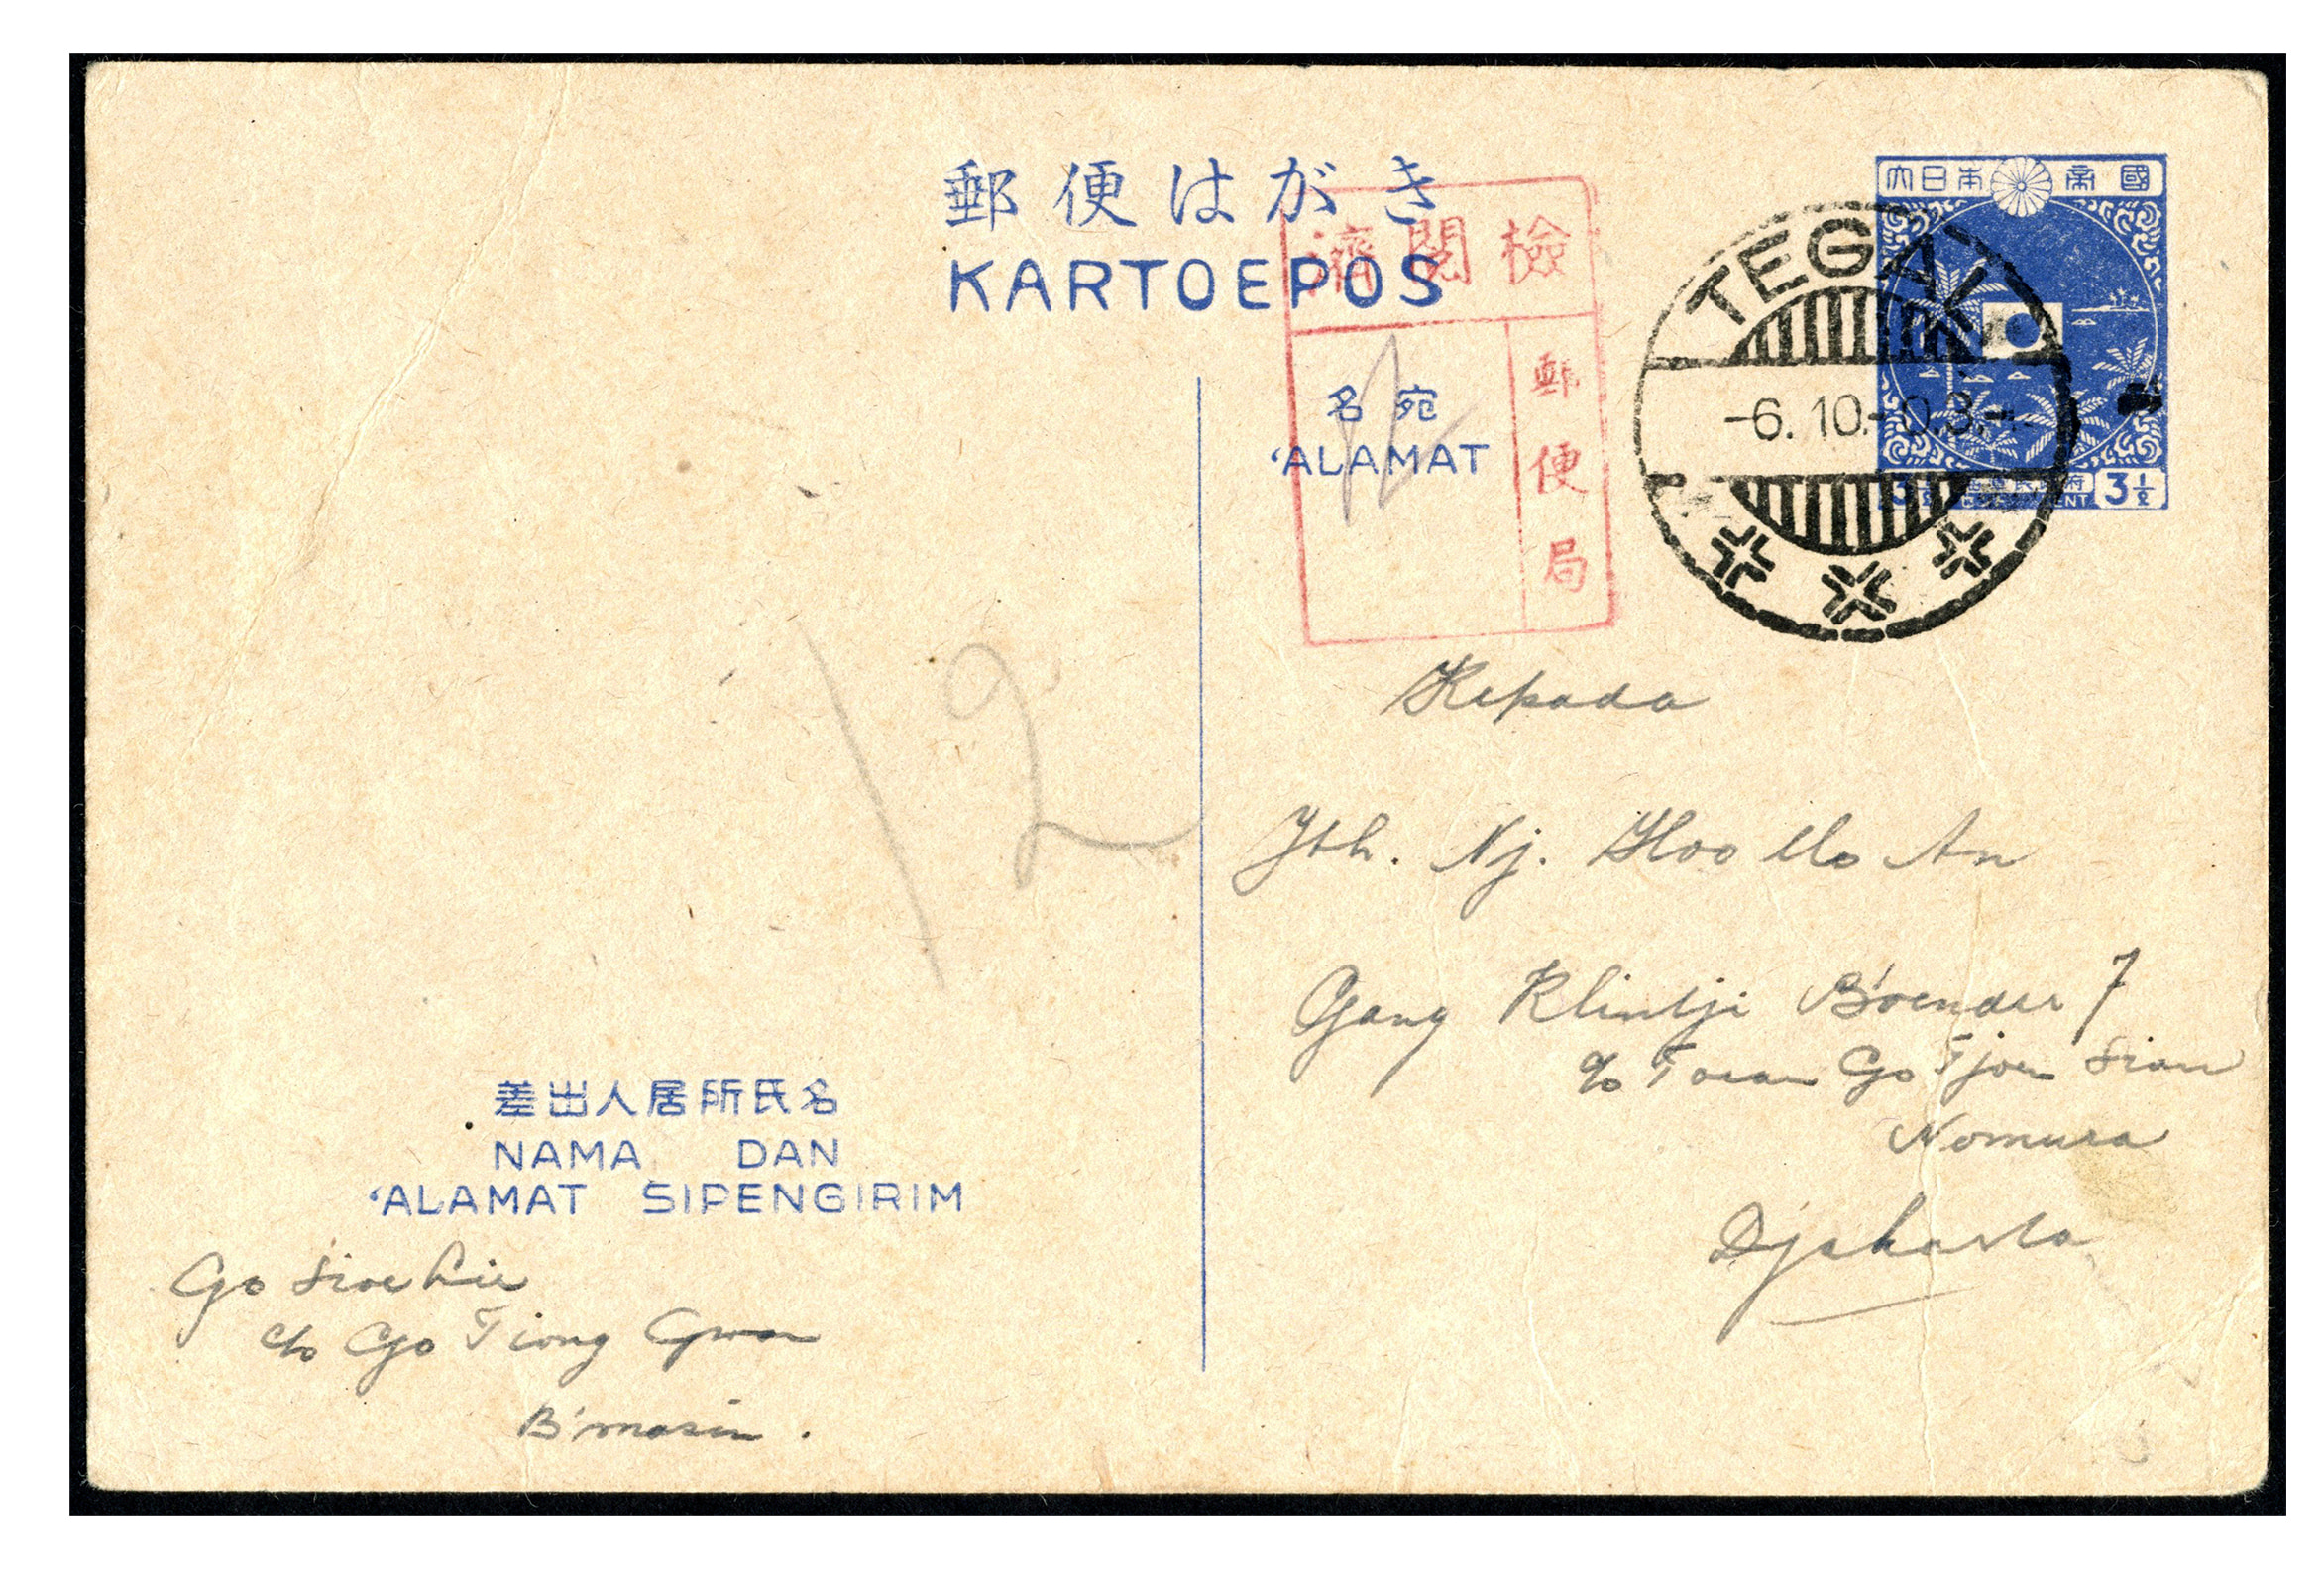 郵便はがき
KARTOEPOS
大日本帝國
檢閲濟
郵便局
TEGAL
-6. 10.- 03.-
3½ 3½
名宛
'ALAMAT
12
12
Kepada
Jth. Nj. Hoo An
Gang Klintji Boender 7
c/o Toean Go Tjoen Sian
Nomura
Djakarta
差出人居所氏名
NAMA DAN
'ALAMAT SIPENGIRIM
Go Sioe Lie
c/o Go Tiong Gwan
B'masin.